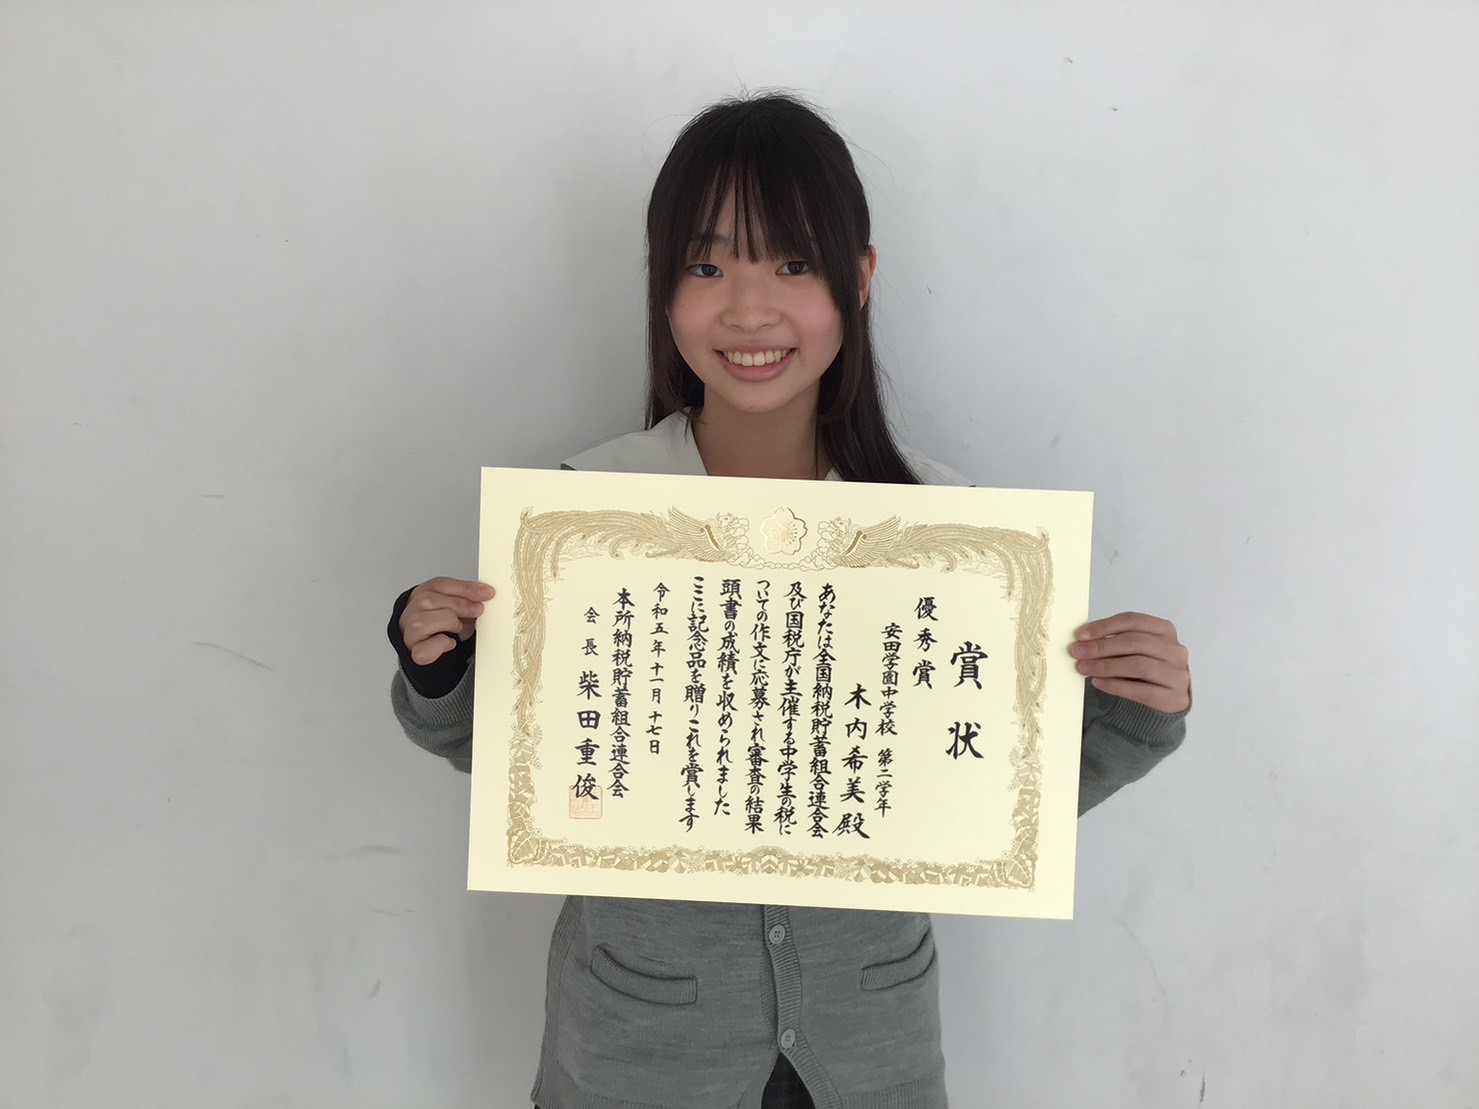 賞状
優秀賞
安田学園中学校 第二学年
木内希美殿
あなたは全国納税貯蓄組合連合会
及び国税庁が主催する中学生の税に
ついての作文に応募され審査の結果
頭書の成績を収められました
ここに記念品を贈りこれを賞します
令和五年十一月十七日
本所納税貯蓄組合連合会
会長 柴田重俊